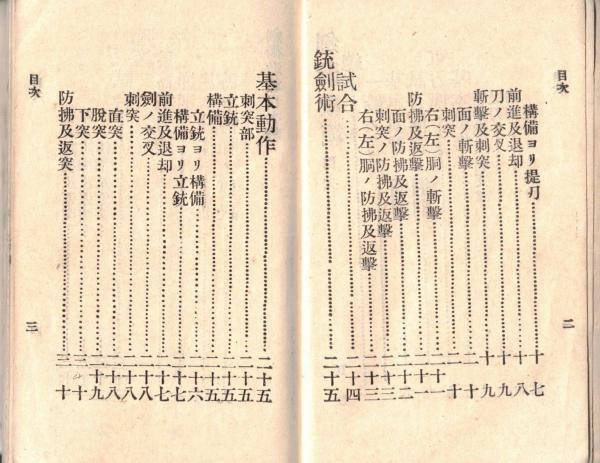 目次
構備ヨリ提刀………十七
前進及退却………十八
刀ノ交叉………十九
斬擊及刺突………十九
面ノ斬擊………二十
刺突………二十
右(左)胴ノ斬擊………二十一
防拂及返擊………二十一
面ノ防拂及返擊………二十二
刺突ノ防拂及返擊………二十三
右(左)胴ノ防拂及返擊………二十三
試合………二十四
銃劍術………二十五
二
基本動作………二十五
刺突部………二十五
立銃………二十五
構備………二十五
立銃ヨリ構備………二十六
構備ヨリ立銃………二十七
前進及退却………二十七
劍ノ交叉………二十八
刺突………二十八
直突………二十八
脫突………二十九
下突………三十
防拂及返突………三十
目次
三